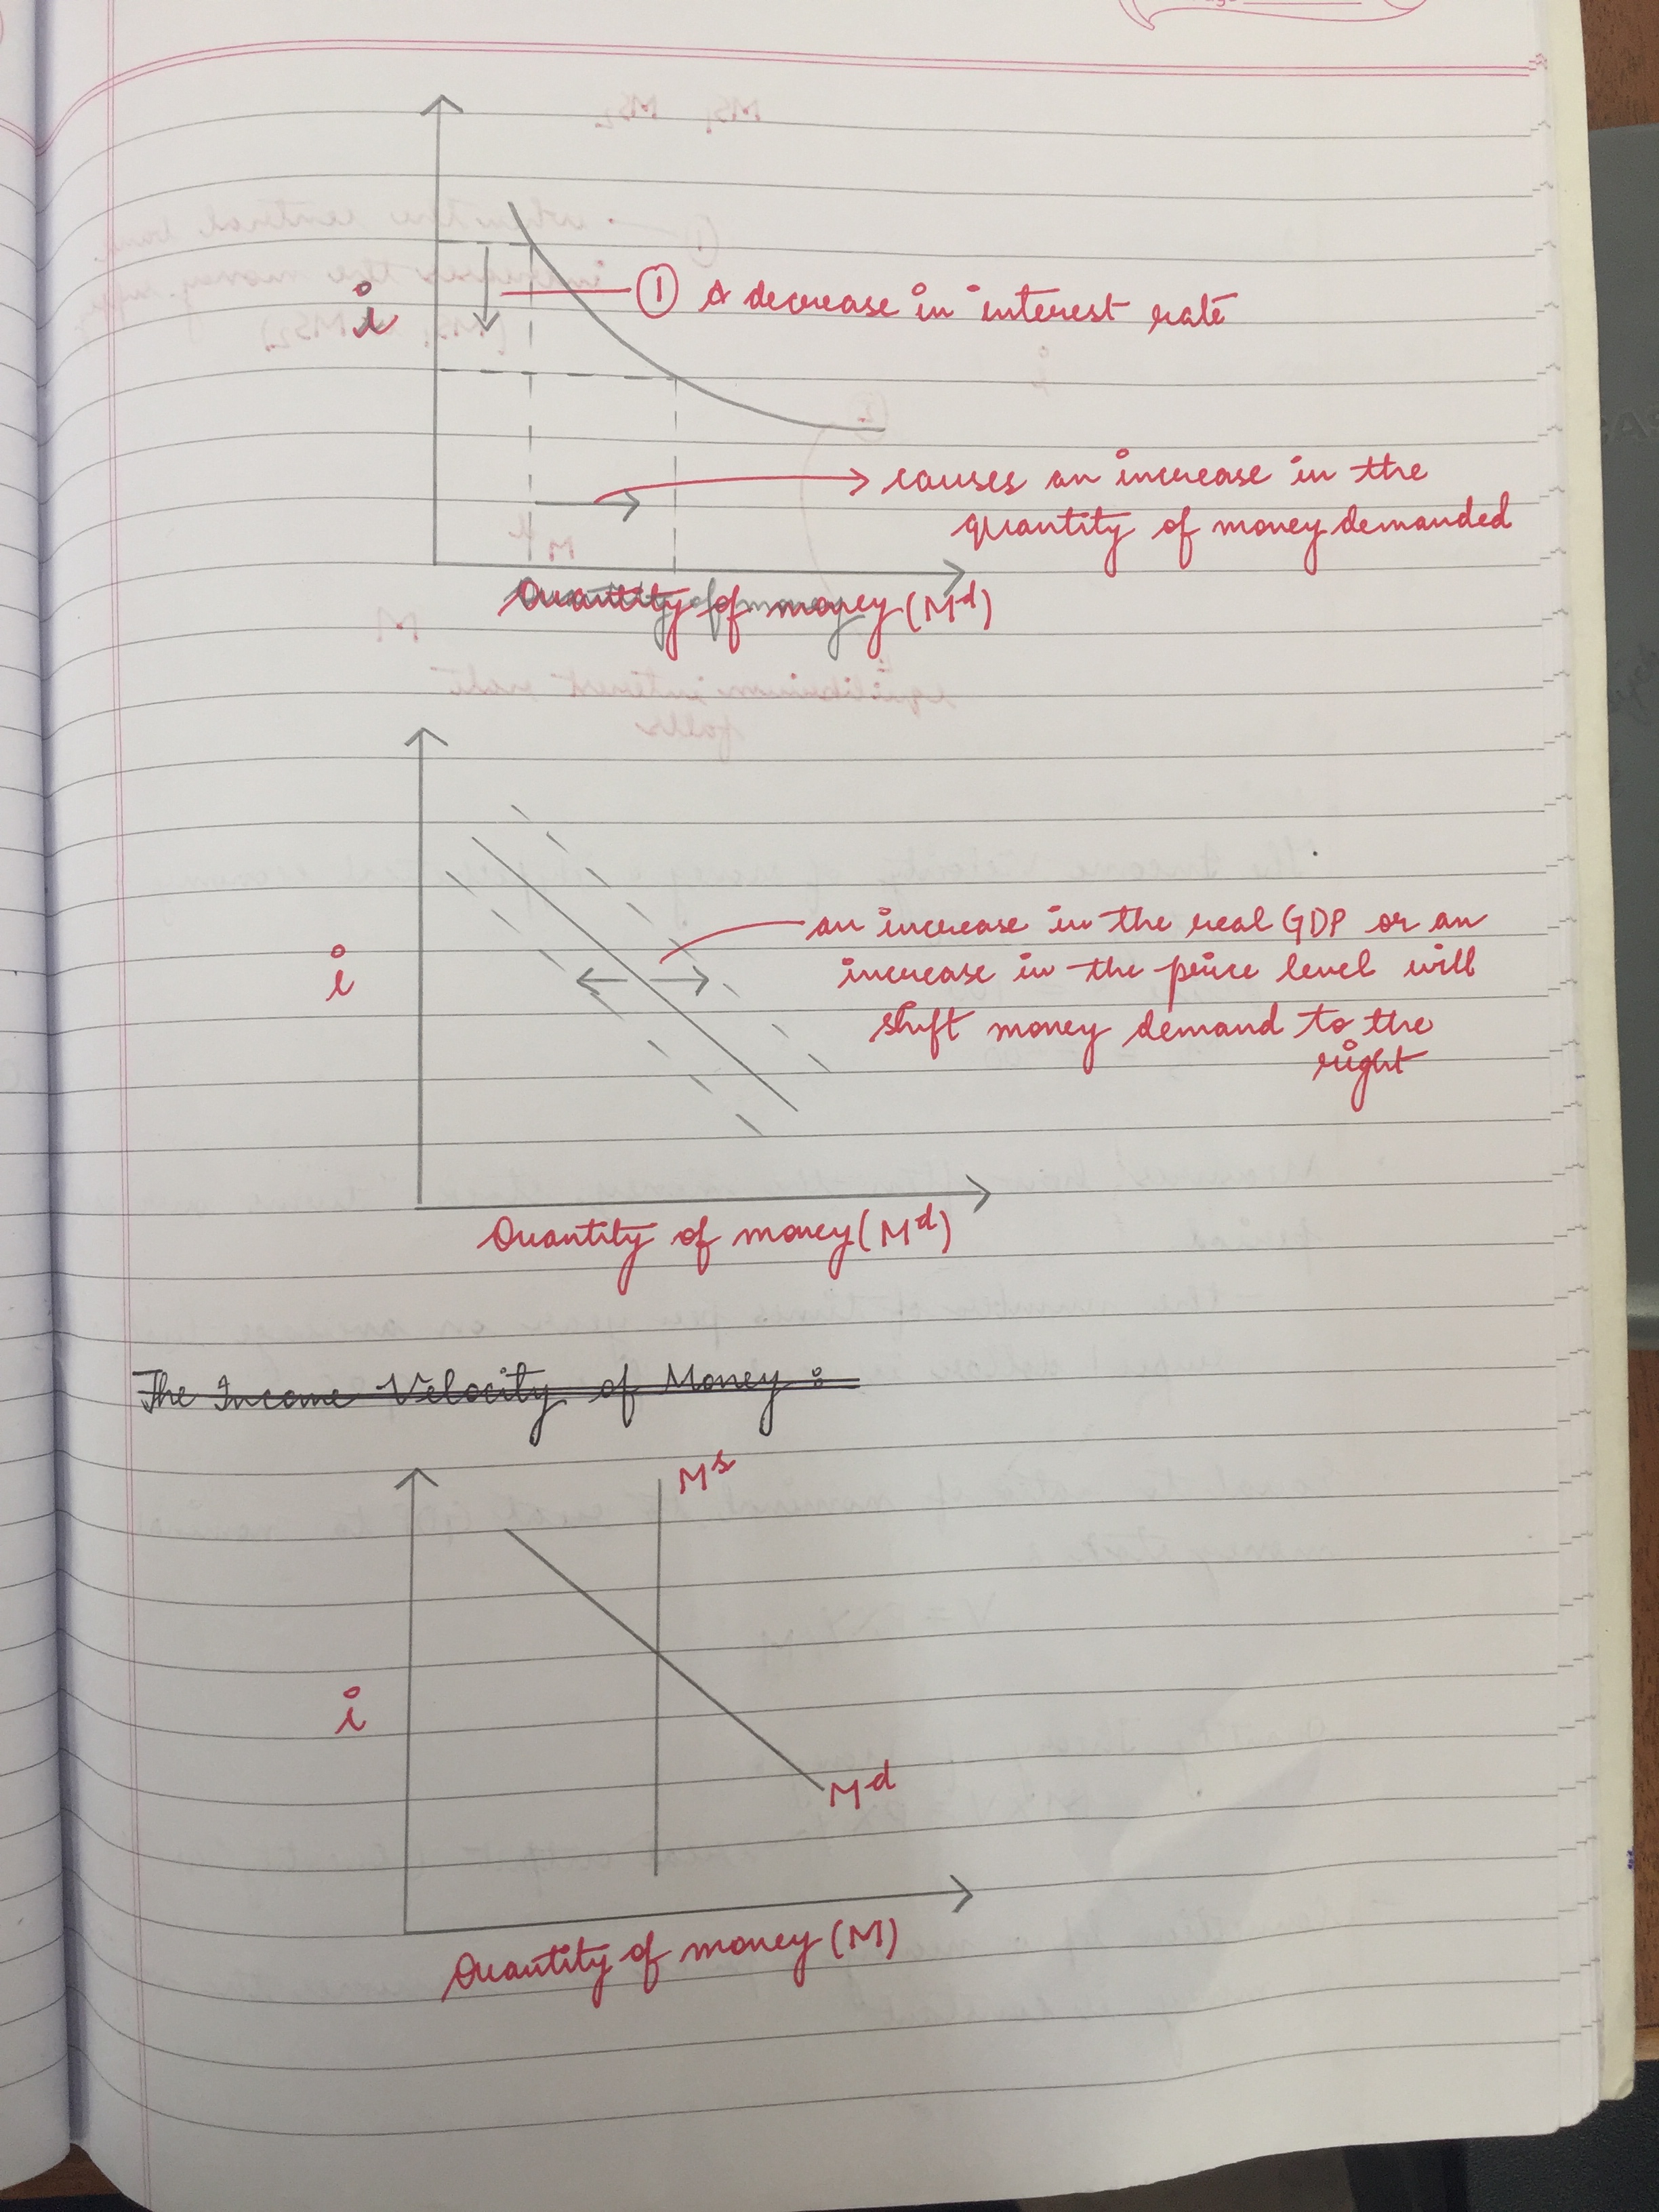 i
① A decrease in interest rate
causes an increase in the
quantity of money demanded
Quantity of money (Mᵈ)
i
an increase in the real GDP or an
increase in the price level will
shift money demand to the
right
Quantity of money (Mᵈ)
The Income Velocity of Money :
Mˢ
i
Mᵈ
Quantity of money (M)